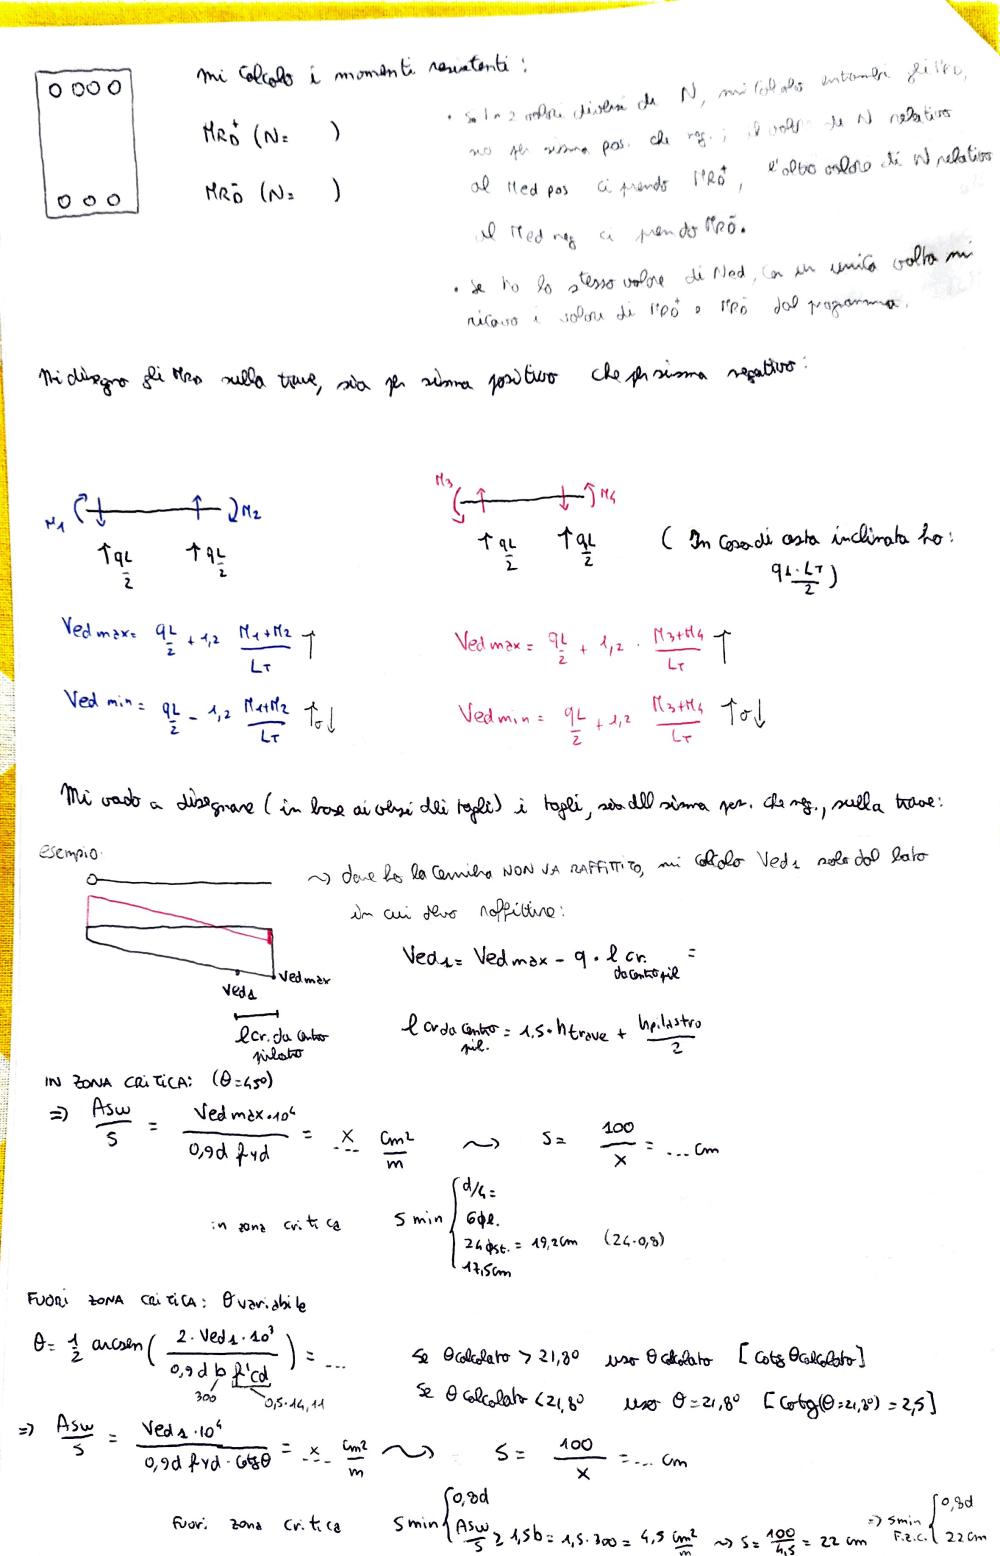 mi calcolo i momenti resistenti:
MRD+ (N=      )
MRD- (N=      )
• Se ho 2 valori diversi di N, mi calcolo entambi gli MRD,
sia per sisma pos. che neg.; il valore di N relativo
al Med pos ci prendo MRD+, l'altro valore di N relativo
al Med neg ci prendo MRD-.
• Se ho lo stesso valore di Ned, con un unica volta mi
ricavo i valori di MRD+ e MRD- dal programma.
Mi disegno gli MRD sulla trave, sia per sisma positivo che per sisma negativo:
M1 M2
qL/2 qL/2
M3 M4
qL/2 qL/2
( In caso di asta inclinata ho:
qL·LT/2 )
Ved max = qL/2 + 1,2 (M1+M2)/LT ↑
Ved max = qL/2 + 1,2 · (M3+M4)/LT ↑
Ved min = qL/2 - 1,2 (M1+M2)/LT ↑o↓
Ved min = qL/2 + 1,2 (M3+M4)/LT ↑o↓
Mi vado a disegnare (in base ai versi dei tagli) i tagli, sia del sisma pos. che neg., sulla trave:
esempio:
~> dove ho la cerniera NON VA RAFFITTITO, mi calcolo Ved1 solo dal lato
in cui devo raffittire:
Ved1 = Ved max - q · l cr. da centro pil =
Vedmax
Ved1
l cr. da centro pilastro
l cr da centro pil. = 1,5 · h trave + hpilastro/2
IN ZONA CRITICA: (θ=45°)
=> Asw/s = Ved max · 10⁴ / 0,9d fyd = x cm²/m ~> s = 100/x = ... cm
in zona critica s min { d/4 =
6φl.
24φst. = 19,2cm (24·0,8)
17,5cm
FUORI ZONA CRITICA: θ variabile
θ = 1/2 arcsen( 2 · Ved1 · 10³ / 0,9 d b f'cd ) = ...
300 0,5·14,11
Se θcalcolato > 21,8° uso θcalcolato [cotg θcalcolato]
Se θcalcolato < 21,8° uso θ = 21,8° [cotg(θ=21,8°) = 2,5]
=> Asw/s = Ved1 · 10⁴ / 0,9d fyd · cotgθ = x cm²/m ~> s = 100/x = ... cm
Fuori zona critica s min { 0,8d
Asw/s ≥ 1,5b = 1,5 · 300 = 4,5 cm²/m ~> s = 100/4,5 = 22 cm => s min F.Z.C. { 0,8d
22cm